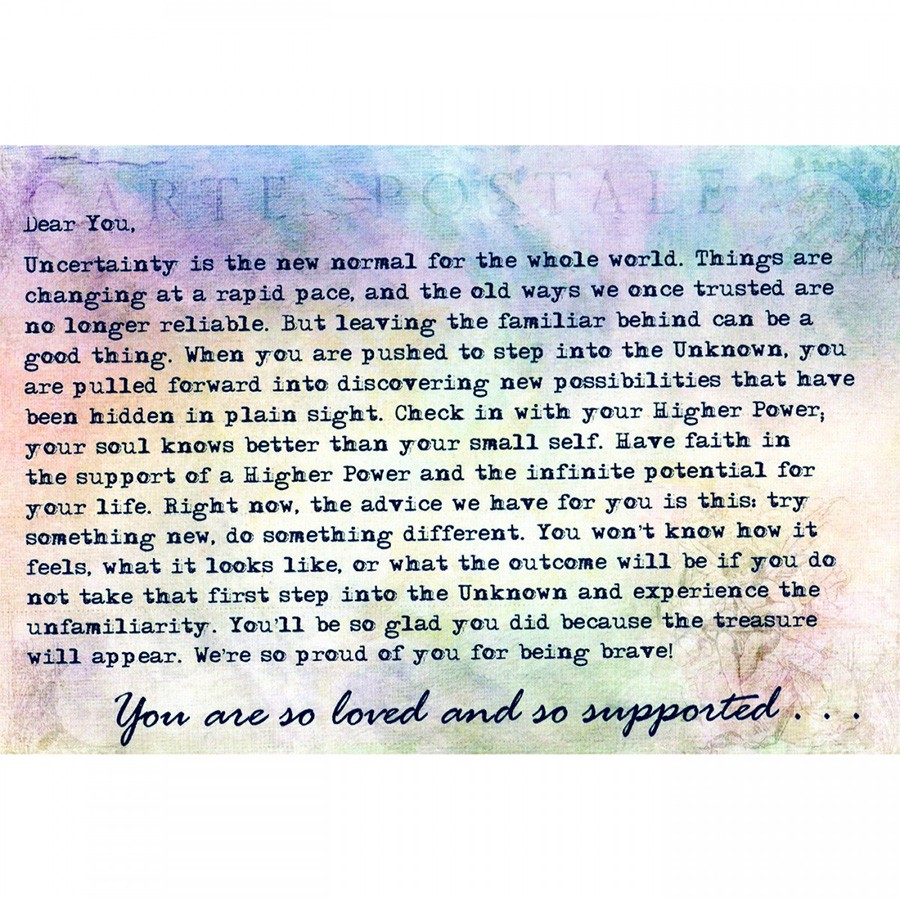 CARTE POSTALE
Dear You,
Uncertainty is the new normal for the whole world. Things are
changing at a rapid pace, and the old ways we once trusted are
no longer reliable. But leaving the familiar behind can be a
good thing. When you are pushed to step into the Unknown, you
are pulled forward into discovering new possibilities that have
been hidden in plain sight. Check in with your Higher Power;
your soul knows better than your small self. Have faith in
the support of a Higher Power and the infinite potential for
your life. Right now, the advice we have for you is this: try
something new, do something different. You won't know how it
feels, what it looks like, or what the outcome will be if you do
not take that first step into the Unknown and experience the
unfamiliarity. You'll be so glad you did because the treasure
will appear. We're so proud of you for being brave!
You are so loved and so supported . . .